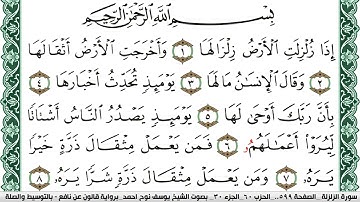 بِسْمِ اللَّهِ الرَّحْمَٰنِ الرَّحِيمِ
إِذَا زُلْزِلَتِ الْأَرْضُ زِلْزَالَهَا ١ وَأَخْرَجَتِ الْأَرْضُ أَثْقَالَهَا
٢ وَقَالَ الْإِنسَٰنُ مَالَهَا ٣ يَوْمَئِذٍ تُحَدِّثُ أَخْبَارَهَا ٤
بِأَنَّ رَبَّكَ أَوْحَىٰ لَهَا ٥ يَوْمَئِذٍ يَصْدُرُ النَّاسُ أَشْتَاتًا
لِّيُرَوْاْ أَعْمَٰلَهُمُۥ ٦ فَمَن يَعْمَلْ مِثْقَالَ ذَرَّةٍ خَيْرًا
يَرَهُۥ ٧ وَمَن يَعْمَلْ مِثْقَالَ ذَرَّةٍ شَرًّا يَرَهُۥ ٨
سورة الزلزلة - الصفحة ٥٩٩ - الحزب ٦٠ - الجزء ٣٠ - بصوت الشيخ يوسف نوح احمد - برواية قالون عن نافع - بالتوسيط والصلة